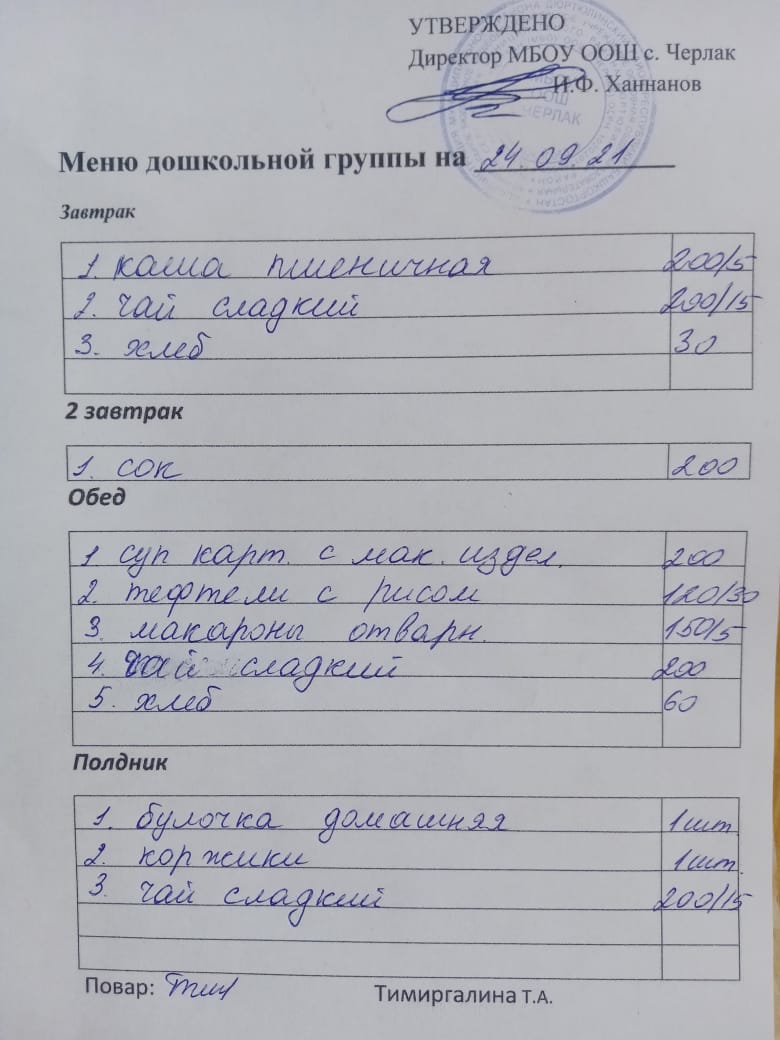 УТВЕРЖДЕНО
Директор МБОУ ООШ с. Черлак
И.Ф. Ханнанов
ООШ
ЧЕРЛАК
Меню дошкольной группы на 24.09.21
Завтрак
1. каша пшеничная 200/5
2. чай сладкий 200/15
3. хлеб 30
2 завтрак
1. сок 200
Обед
1 суп карт. с мак. издел. 200
2. тефтели с рисом 120/30
3. макароны отварн. 150/5
4. чай сладкий 200
5. хлеб 60
Полдник
1. булочка домашняя 1шт
2. коржики 1шт.
3. чай сладкий 200/15
Повар: Тимиргалина Т.А.